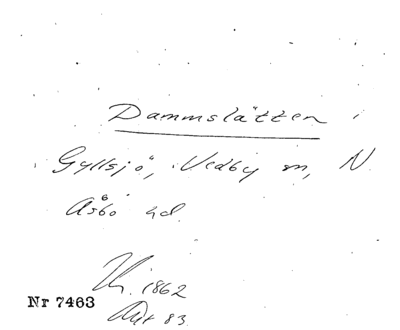 Dammslätten i
Gyllsjö, Vedby sn, N
Åsbo hd.
1862
Nr 7463
Akt 83